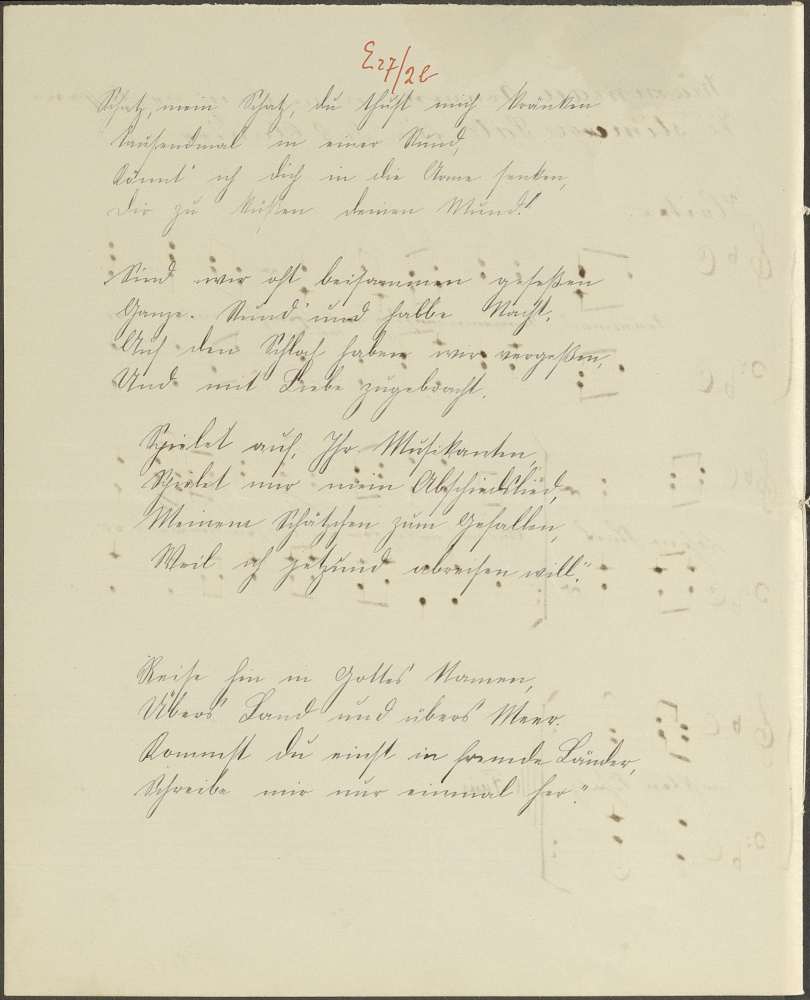 E27/2b
Schatz, mein Schatz, du thust mich kränken
Tausendmal in einer Stund,
Könnt' ich dich in die Arme senken,
Dir zu küßen deinen Mund!"
Sind wir oft beisammen geseßen
Ganze. Stund' und halbe Nacht,
Auf den Schlaf haben wir vergeßen,
Und mit Liebe zugebracht.
Spielet auf, Ihr Musikanten,
Spielet mir mein Abschiedslied,
Meinem Schätzchen zum Gefallen,
Weil ich jetzund abreisen will."
Reise hin in Gottes Namen,
Übers' Land und übers' Meer.
Kommst du einst in fremde Länder,
Schreibe mir nur einmal her."